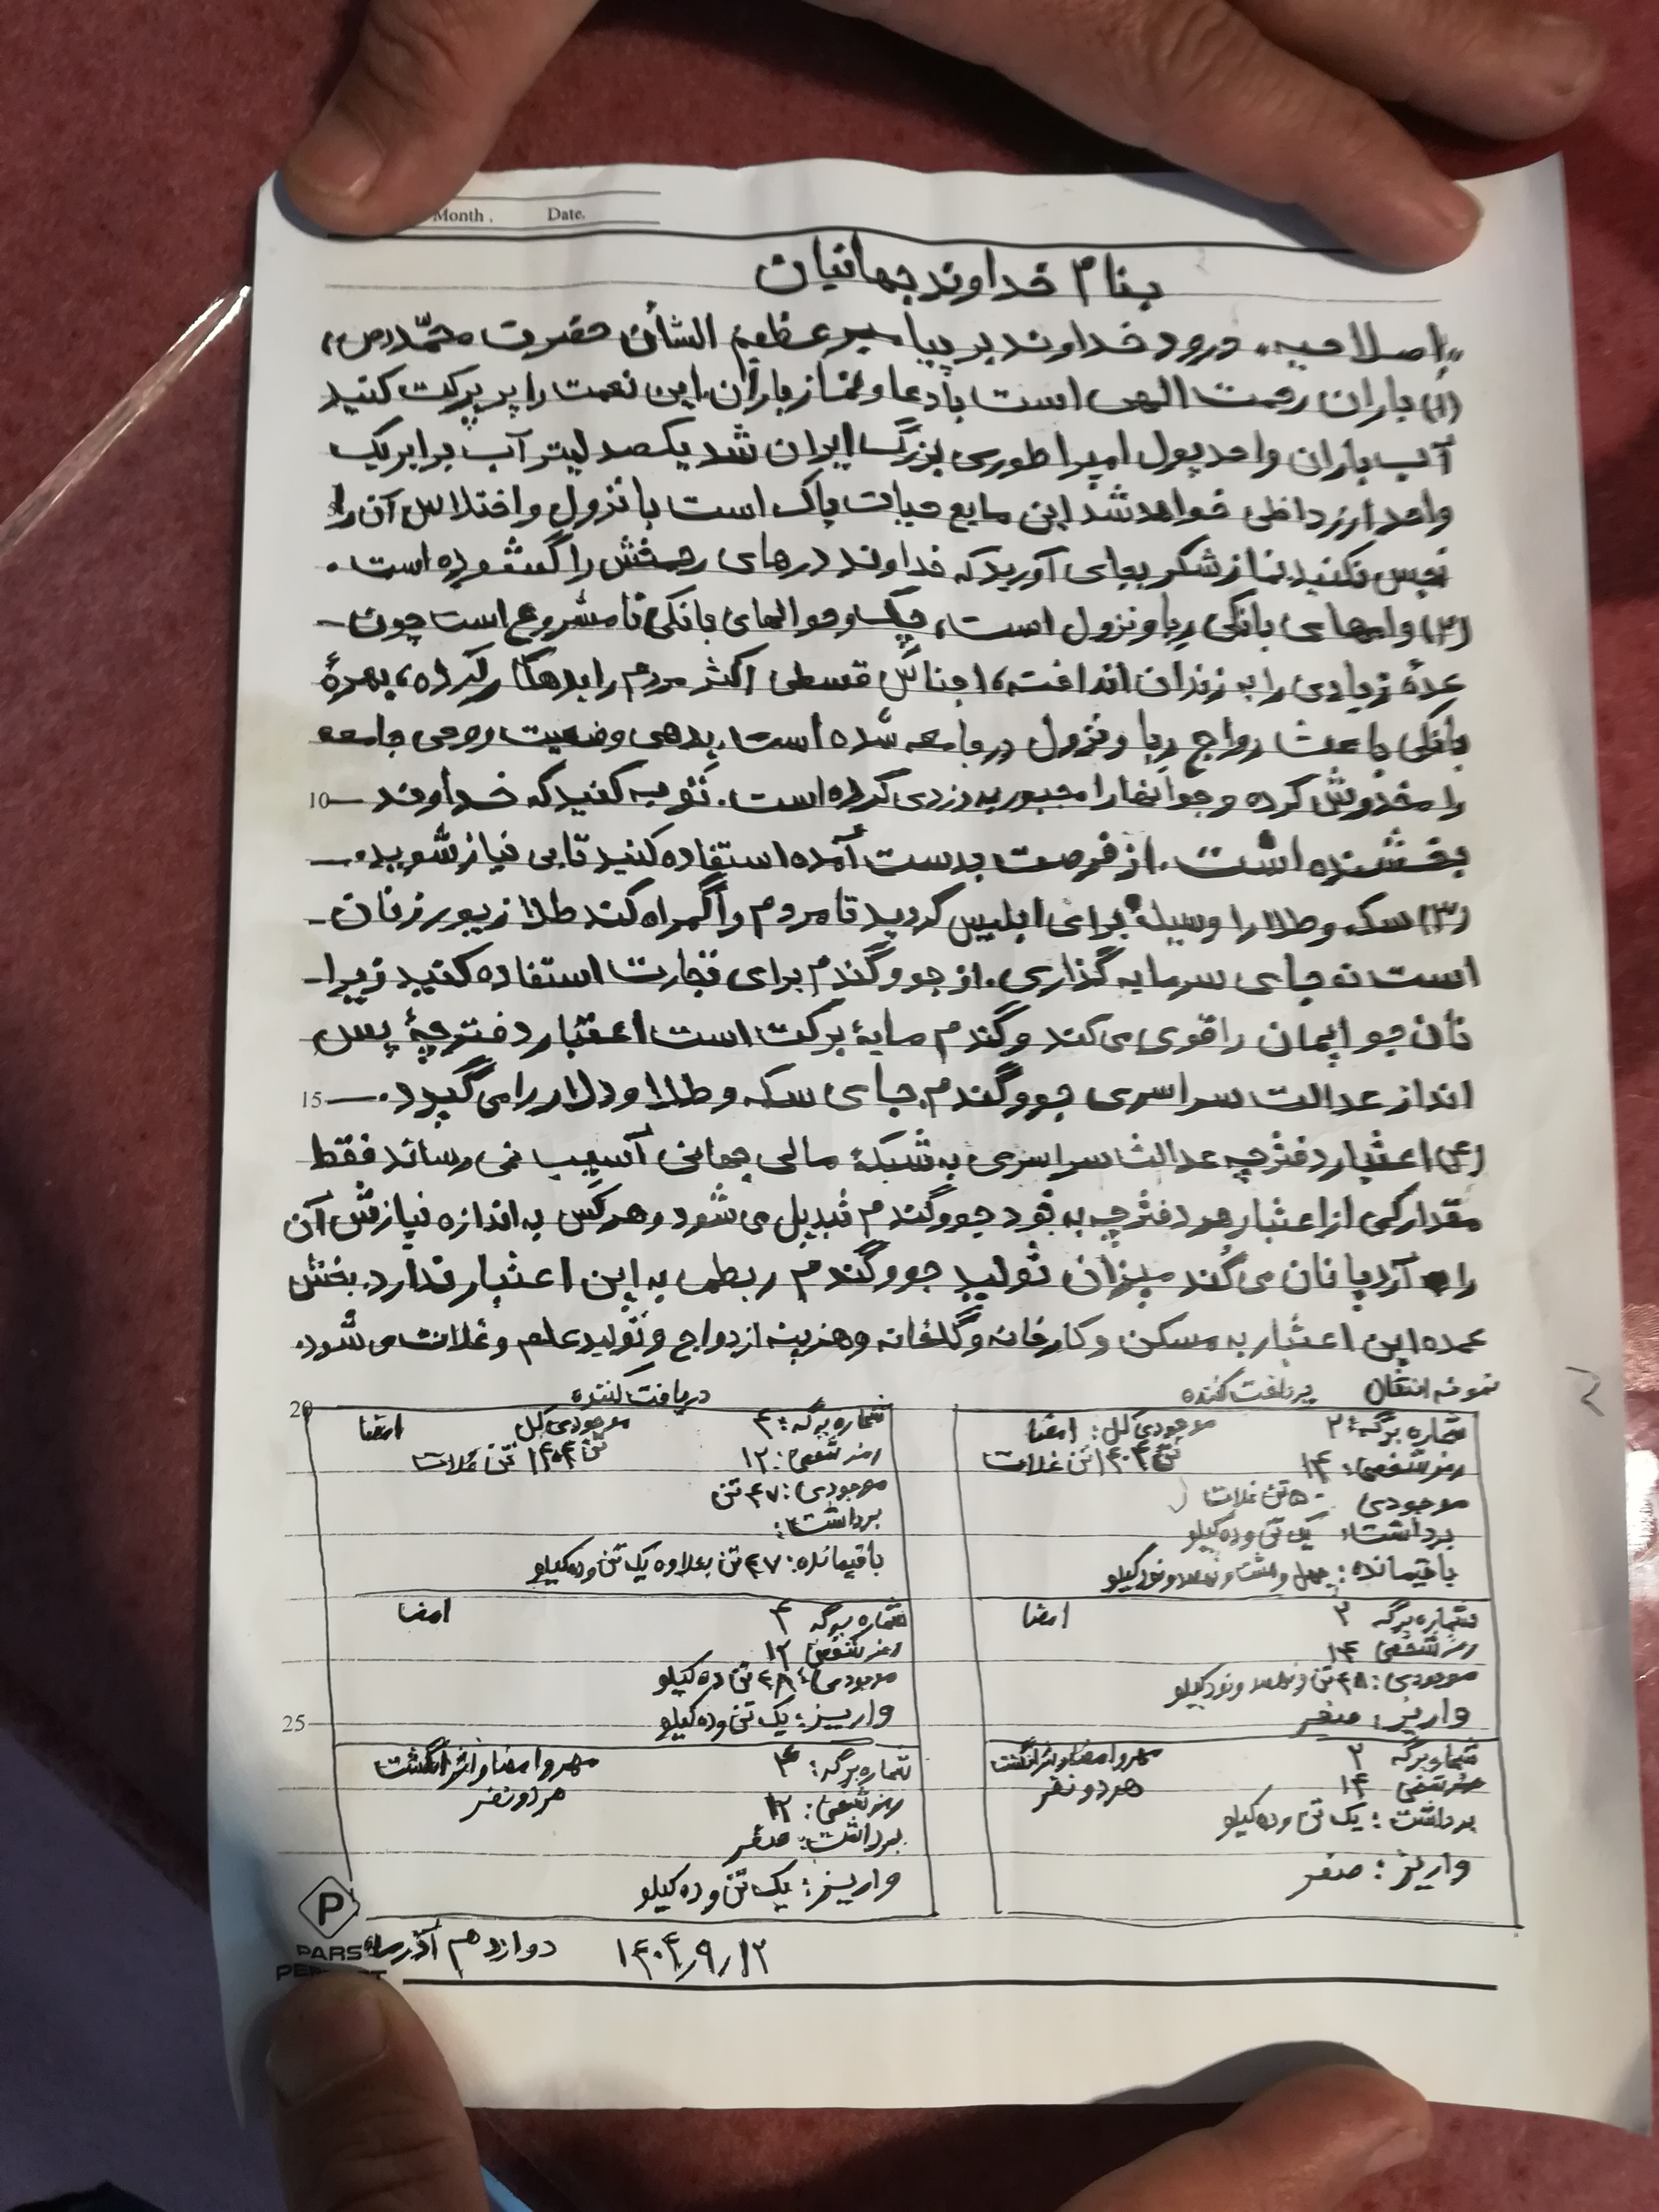 Month. Date.
بنام خداوند جهانیان
"اصلاحیه" درود خداوند بر پیامبر عظیم الشأن حضرت محمّد (ص)
(۱) باران رحمت الهی است با دعا و نماز باران این نعمت را پر برکت کنید
آب باران واحد پول امپراطوری بزرگ ایران شد یکصد لیتر آب برابر یک
واحد ارز داخلی خواهد شد این مایع حیات پاک است با نزول و اختلاس آن را
نجس نکنید نماز شکر بجای آورید که خداوند درهای رحمتش را گشوده است.
(۲) وامهای بانکی ربا و نزول است، چک و حوالهای بانکی نامشروع است چون
عدهٔ زیادی را به زندان انداخت، اجناس قسطی اکثر مردم را بدهکار کرده، بهرهٔ
بانکی باعث رواج ربا و نزول در جامعه شده است. بدهی وضعیت روحی جامعه
را مخدوش کرده و جوانها را مجبور به دزدی کرده است. توبه کنید که خداوند 10
بخشنده است. از فرصت بدست آمده استفاده کنید تا بی نیاز شوید.
(۳) سکه و طلا را وسیلهٔ برای ابلیس کردید تا مردم را گمراه کند طلا زیور زنان
است نه جای سرمایه گذاری. از جو و گندم برای تجارت استفاده کنید زیرا
نان جو ایمان را قوی می کند و گندم مایهٔ برکت است اعتبار دفترچهٔ پس
انداز عدالت سراسری جو و گندم جای سکه و طلا و دلار را می گیرد. 15
(۴) اعتبار دفترچه عدالت سراسری به شبکهٔ مالی جهانی آسیب نمی رساند فقط
مقدار کمی از اعتبار هر دفترچه به خود جو و گندم تبدیل می شود و هر کس به اندازه نیازش آن
را آرد یا نان می کند میزان تولید جو و گندم ربطی به این اعتبار ندارد. بخش
عمده این اعتبار به مسکن و کارخانه و گلخانه و هزینه ازدواج و تولید علم و غلات می شود.
نمونه انتقال پرداخت کننده
شماره برگه: ۲ موجودی کل: امضا
رمز شخصی: ۱۴ ۱۴۰۴ تن غلات
موجودی ۵۰ تن غلات
برداشت: یک تن و ده کیلو
باقیمانده: چهل و هشت و نهصد و نود کیلو
شماره برگه ۲ امضا
رمز شخصی ۱۴
موجودی: ۴۸ تن و نهصد و نود کیلو
واریز: صفر
شماره برگه ۲ مهر و امضا و اثر انگشت
رمز شخصی ۱۴ هر دو نفر
برداشت: یک تن و ده کیلو
واریز: صفر
دریافت کننده
20 شماره برگه: ۴ موجودی کل امضا
رمز شخصی: ۱۲ ۱۴۰۴ تن غلات
موجودی: ۴۷ تن
برداشت:
باقیمانده: ۴۷ تن بعلاوه یک تن و ده کیلو
شماره برگه ۴ امضا
رمز شخصی ۱۲
موجودی: ۴۸ تن ده کیلو
واریز: یک تن و ده کیلو 25
شماره برگه: ۴ مهر و امضا و اثر انگشت
رمز شخصی: ۱۲ هر دو نفر
برداشت: صفر
واریز: یک تن و ده کیلو
۱۴۰۴/۹/۱۲ دوازدهم آذر ماه
P
PARS